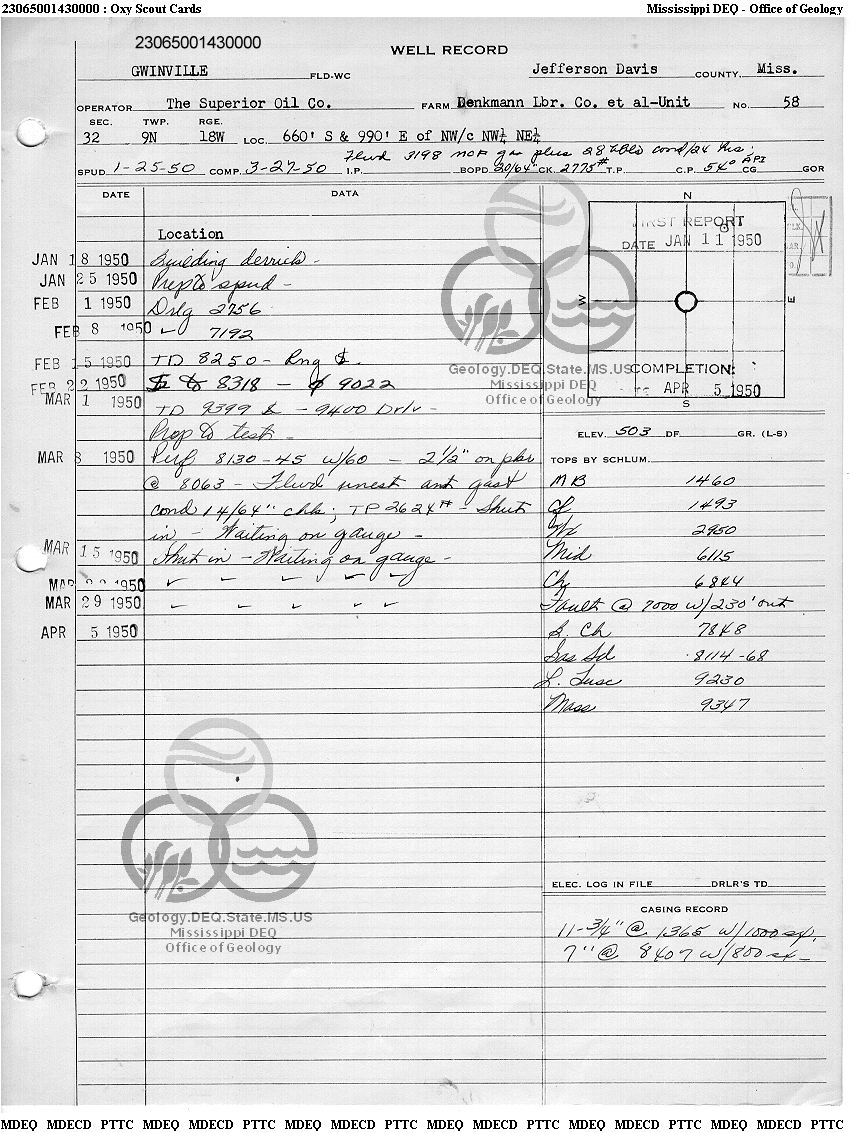 23065001430000 : Oxy Scout Cards Mississippi DEQ - Office of Geology
23065001430000
WELL RECORD
GWINVILLE FLD-WC Jefferson Davis COUNTY, Miss.
OPERATOR The Superior Oil Co. FARM Denkmann Lbr. Co. et al-Unit No. 58
SEC. TWP. RGE.
32 9N 18W LOC. 660' S & 990' E of NW/c NW¼ NE¼
Flwd 3198 MCF gas plus 28 bbls cond/24 hrs;
SPUD 1-25-50 COMP. 3-27-50 I.P. BOPD 20/64" CK. 2775# T.P. C.P. 54° API CG GOR
DATE DATA
N
Location
FIRST REPORT
DATE JAN 11 1950
JAN 18 1950 Building derrick -
JAN 25 1950 Prep to spud -
FEB 1 1950 Drlg 2756
W E
FEB 8 1950 ✓ 7192
FEB 15 1950 TD 8250 - Rng
FEB 22 1950 8318 - 9022
MAR 1 1950 TD 9399 - 9400 Drlr -
Prep to test -
Geology.DEQ.State.MS.US
Mississippi DEQ
Office of Geology
COMPLETION:
APR 5 1950
S
ELEV. 503 DF GR. (L-S)
MAR 8 1950 Perf 8130-45 w/60 - 2½" on pkr
@ 8063 - Flwd unest amt gas &
cond 14/64" chk; TP 2624# - Shut
in - Waiting on gauge -
MAR 15 1950 Shut in - Waiting on gauge -
MAR 22 1950 ✓ ✓ ✓ ✓ ✓
MAR 29 1950 ✓ ✓ ✓ ✓ ✓
APR 5 1950
TOPS BY SCHLUM.
MB 1460
Gf 1493
Wx 2950
Mid 6115
Ch 6844
Fault @ 7000 w/230' out
L. Ch 7848
Gas Sd 8114-68
L. Tusc 9230
Mass 9347
Geology.DEQ.State.MS.US
Mississippi DEQ
Office of Geology
ELEC. LOG IN FILE DRLR'S TD
CASING RECORD
11-3/4" @ 1365 w/1000 sx.
7" @ 8407 w/800 sx -
MDEQ MDECD PTTC MDEQ MDECD PTTC MDEQ MDECD PTTC MDEQ MDECD PTTC MDEQ MDECD PTTC MDEQ MDECD PTTC